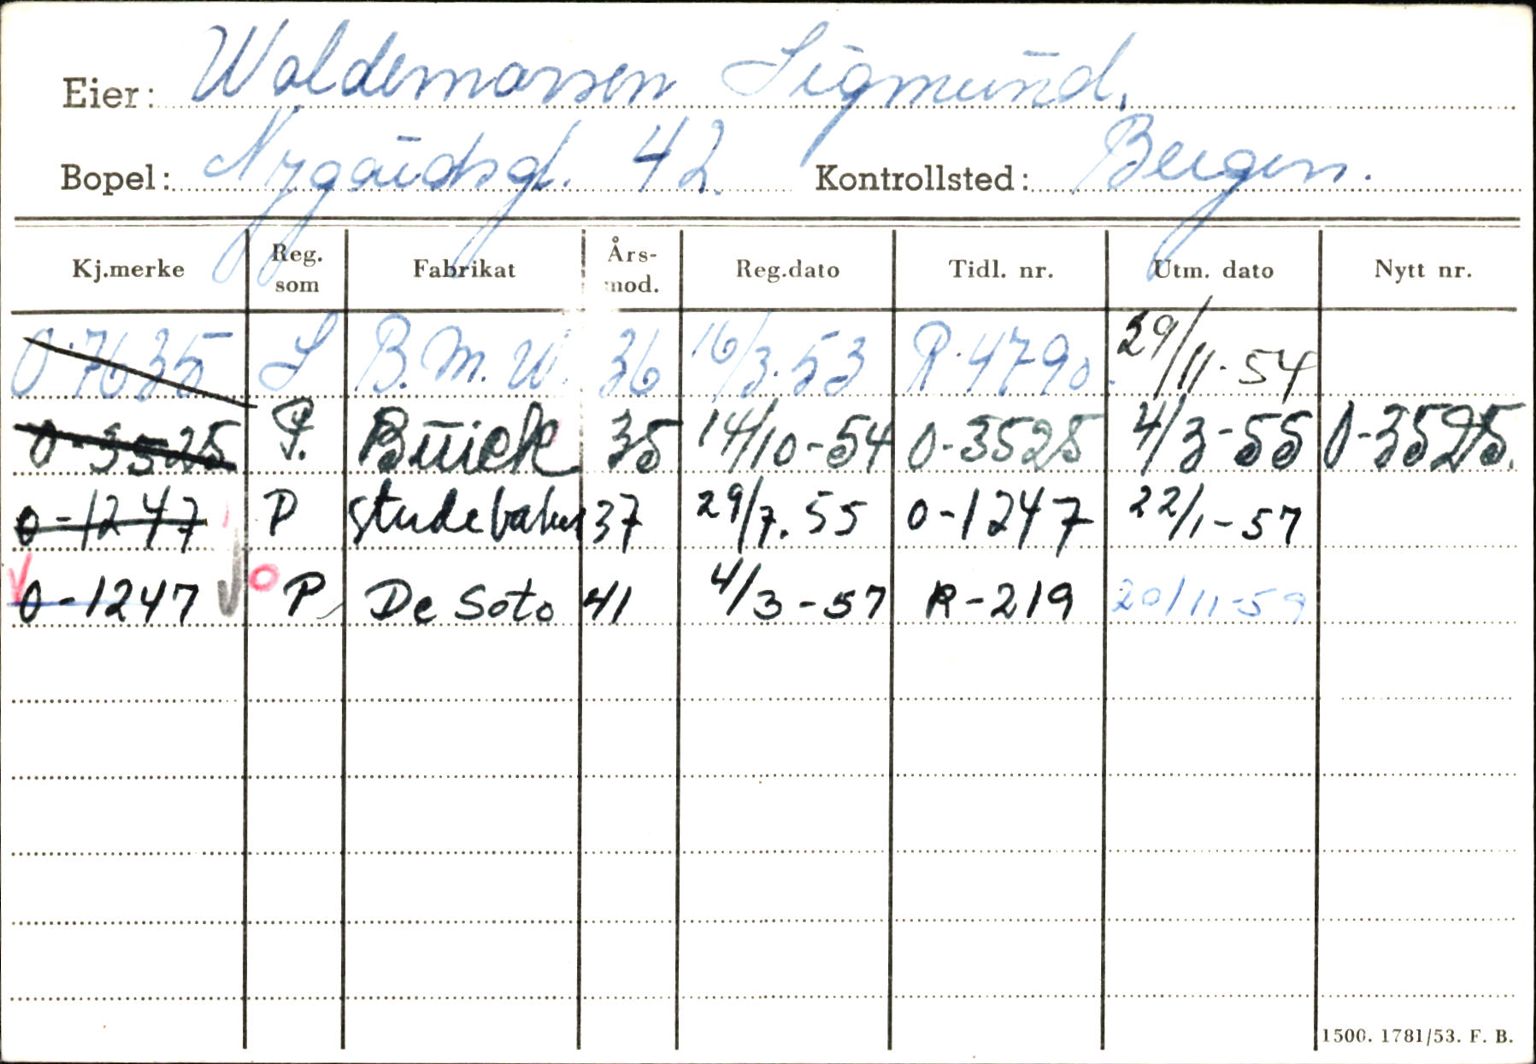 Eier: Waldemarsen Sigmund.
Bopel: Nygårdsgt. 42 Kontrollsted: Bergen.
Kj.merke Reg. som Fabrikat Års-mod. Reg.dato Tidl. nr. Utm. dato Nytt nr.
O-7635 L B.M.W. 36 16/3.53 R-4790. 29/11-54
O-3525 P. Buick 35 14/10-54 O-3525 4/3-55 O-3525.
O-1247 P Studebaker 37 29/7.55 O-1247 22/1-57
O-1247 P De Soto 41 4/3-57 R-219 20/11-59
1500. 1781/53. F. B.